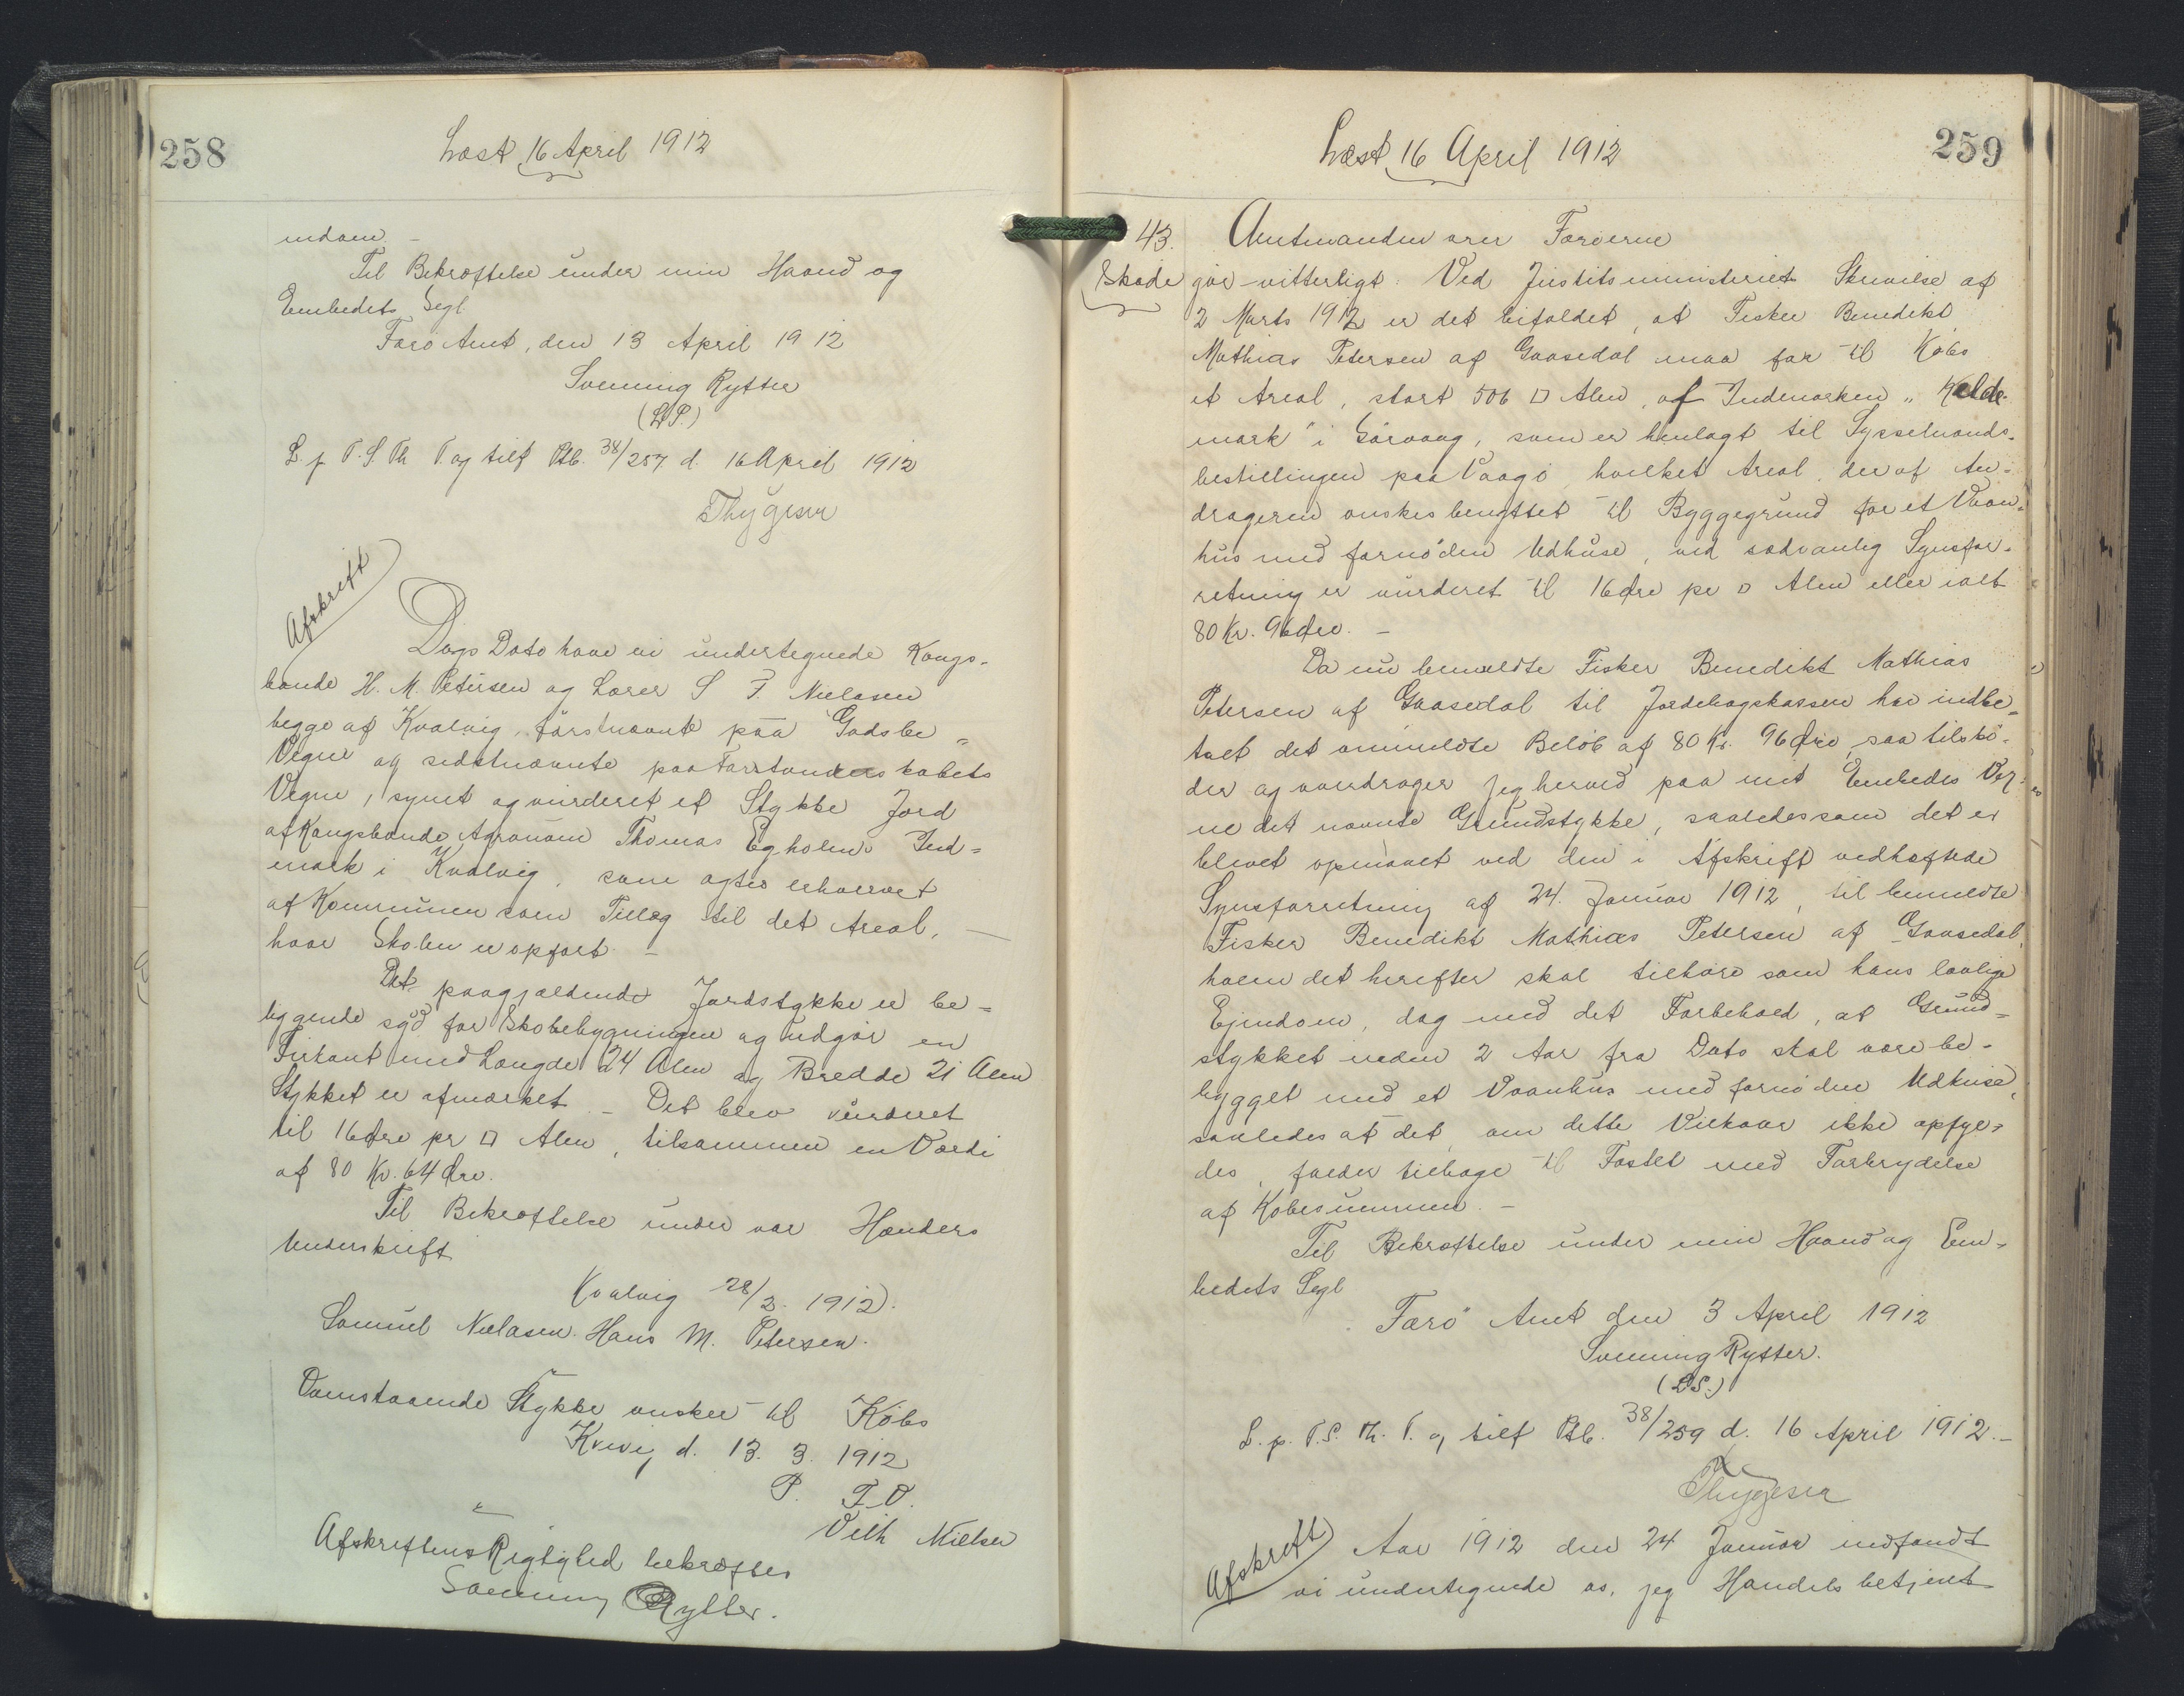 258
Læst 16 April 1912
endom. –
Til Bekræftelse under min Haand og
Embedets Segl
Færo Amt, den 13 April 1912
Svenning Rytter
(L.S.)
L. p. T. S. Th T. og tilf Ptb. 38/257 d. 16 April 1912
Thygesen
Afskrift
Dags Dato have vi undertegnede Kongs-
bonde H. M. Petersen og Lærer S F. Nielasen
begge af Kvalvig, førstnævnte paa Godsbe=
Vegne og sidstnævnte paa Forstanderskabets
Vegne, synet og vurderet et Stykke Jord
af Kongsbonde Agronom Thomas Egholms Ind=
mark i Kvalvig, som agtes erhvervet
af Kommunen som Tillæg til det Areal, –
hvor Skolen er opført –
Det paagjældende Jordstykke er be=
liggende syd for Skolebygningen og udgør en
Firkant med Længde 24 Alen og Bredde 21 Alen
Stykket er afmærket – Det blev vurderet
til 16 Øre pr □ Alen, tilsammen en Værdi
af 80 Kr. 64 Øre.
Til Bekræftelse under vor Hænders
Underskrift
Kvalvig 28/2. 1912.
Samuel Nielasen. Hans M. Petersen.
Ovenstaaende Stykke ønskes til Købs
Kvivig d. 13. 3. 1912
P. F. V.
Vilh Nielsen
Afskriftens Rigtighed bekræftes
Svenning Rytter.
259
Læst 16 April 1912
43. Amtmanden over Færøerne
Skøde gør vitterligt: Ved Justitsministeriets Skrivelse af
2 Marts 1912 er det bifaldet, at Fisker Benedikt
Mathias Petersen af Gaasedal maa faa til Købs
et Areal, stort 506 □ Alen, af Indmarken „Kelde-
mark" i Sörvaag, som er henlagt til Sysselmands-
bestillingen paa Vaagø, hvilket Areal, der af An=
drageren ønskes benyttet til Byggegrund for et Vaan=
hus med fornøden Udhuse, ved sædvanlig Synsfor-
retning er vurderet til 16 Øre pr □ Alen eller ialt
80 Kr. 96 Øre. –
Da nu bemeldte Fisker Benedikt Mathias
Petersen af Gaasedal til Jordebogskassen har indbe=
talt det ommeldte Beløb af 80 Kr. 96 Øre, saa tilskö-
der og overdrager jeg herved paa mit Embedes Veg-
ne det nævnte Grundstykke, saaledes som det er
blevet opmaalt ved den i Afskrift vedhæftede
Synsforretning af 24. Januar 1912, til bemeldte
Fisker Benedikt Mathias Petersen af Gaasedal,
hvem det herefter skal tilhøre som hans lovlige
Ejendom, dog med det Forbehold, at Grund=
stykket inden 2 Aar fra Dato skal være be-
bygget med et Vaanhus med fornøden Udhuse,
saaledes at det, om dette Vilkaar ikke opfyl=
des, falder tilbage til Fæstet med Forbrydelse
af Købesummen. –
Til Bekræftelse under min Haand og Em-
bedets Segl
Færö Amt den 3 April 1912
Svenning Rytter.
(L.S.)
L. p. T. S. Th. T. og tilf Ptb. 38/259 d. 16 April 1912. –
Thygesen
Afskrift
Aar 1912 den 24 Januar indfandt
vi undertegnede os, jeg Handelsbetjent